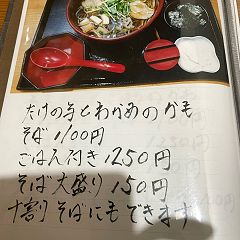 たけの子とわかめのかも
そば 1100円
ごはん付き 1250円
そば大盛り 150円
十割りそばにもできます